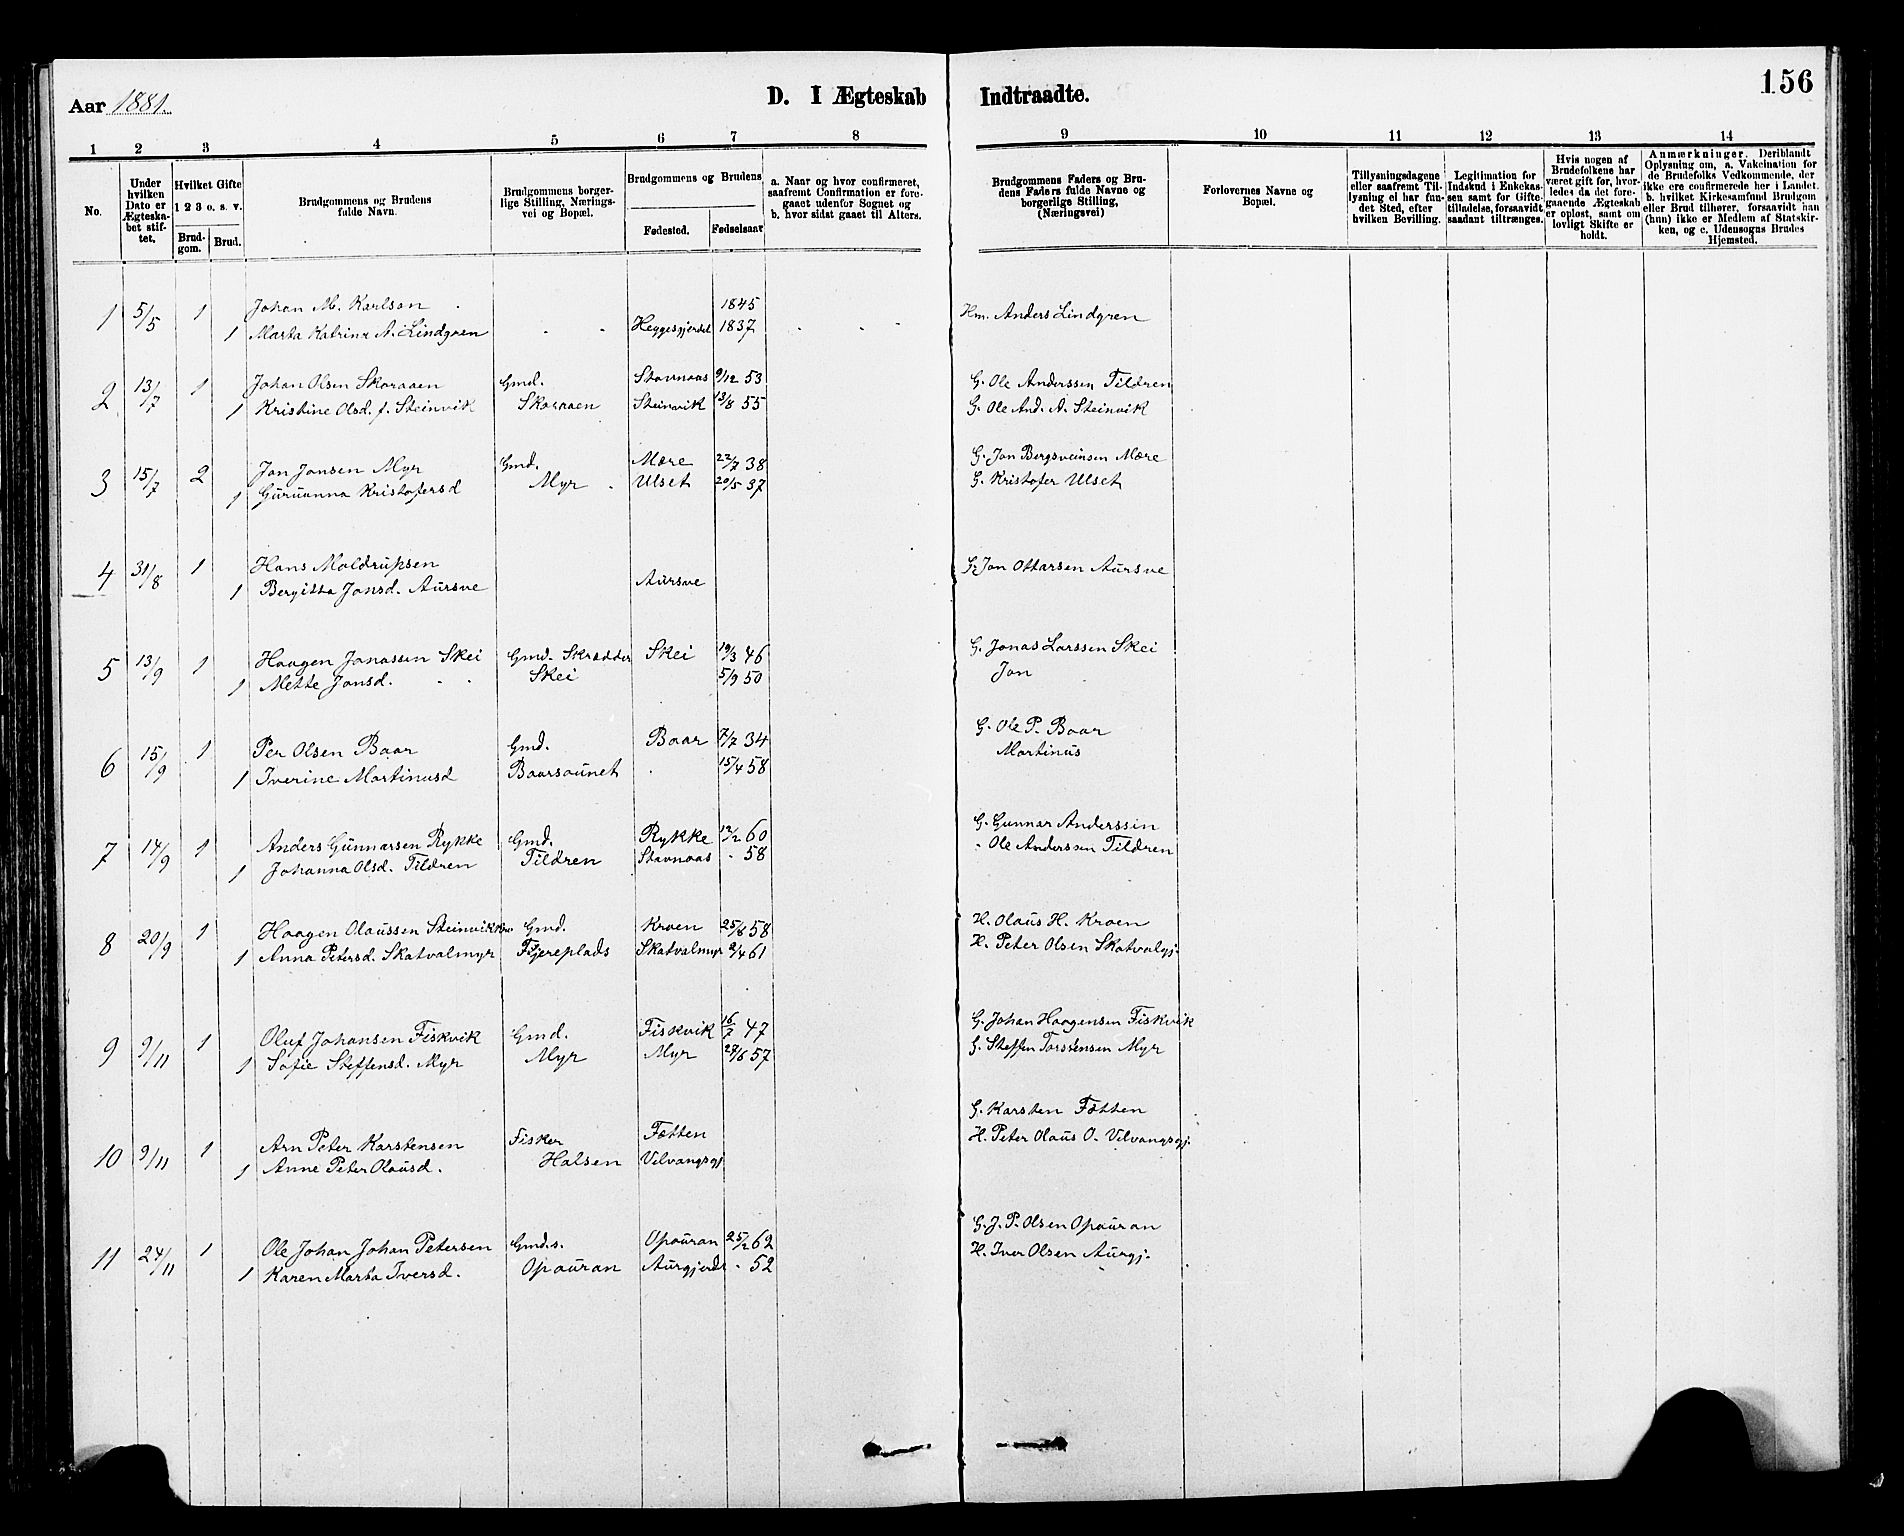 Aar 1881.
D. I Ægteskab Indtraadte.
156
1 2 3 4 5 6 7 8 9 10 11 12 13 14
No.
Under hvilken Dato er Ægteskabet stiftet.
Hvilket Gifte 1 2 3 o. s. v.
Brudgom. Brud.
Brudgommens og Brudens fulde Navn.
Brudgommens borgerlige Stilling, Næringsvei og Bopæl.
Brudgommens og Brudens
Fødested. Fødselsaar
a. Naar og hvor confirmeret, saafremt Confirmation er foregaaet udenfor Sognet og b. hvor sidst gaaet til Alters.
Brudgommens Faders og Brudens Faders fulde Navne og borgerlige Stilling, (Næringsvei)
Forlovernes Navne og Bopæl.
Tillysningsdagene eller saafremt Tillysning ei har fundet Sted, efter hvilken Bevilling.
Legitimation for Indskud i Enkekassen samt for Giftetilladelse, forsaavidt saadant tiltrænges.
Hvis nogen af Brudefolkene har været gift før, hvorledes da det foregaaende Ægteskab er opløst, samt om lovligt Skifte er holdt.
Anmærkninger. Deriblandt Oplysning om, a. Vakcination for de Brudefolks Vedkommende, der ikke ere confirmerede her i Landet. b. hvilket Kirkesamfund Brudgom eller Brud tilhører, forsaavidt han (hun) ikke er Medlem af Statskirken, og c. Udensogns Brudes Hjemsted.
1 5/5 1 Johan M. Karlson 1845 Hm. Anders Lindgren
1 Marta Katrina A. Lindgren Heggesgjerdet 1837
2 13/7 1 Johan Olsen Skoraaen Gmd. Stavnaas 9/12 53 G. Ole Anderssen Tildren
1 Kristine Olsd. f. Steinvik Skoraaen Steinvik 13/8 55 G. Ole And. A. Steinvik
3 15/7 2 Jon Jonsen Myr Gmd. Mære 22/7 38 G. Jon Bergsveinsen Mære
1 Guruanna Kristofersd Myr Ulset 20/5 37 G. Kristofer Ulset
4 31/8 1 Hans Moldrupsen G. Jon Ottarsen Aursve
1 Bergitta Jonsd. Aursve Aursve
5 13/9 1 Haagen Jonassen Skei Gmd. Skrædder Skei 19/3 46 G. Jonas Larssen Skei
1 Mette Jonsd. Skei 5/9 50 Jon
6 15/9 1 Per Olsen Baar Gmd. Baar 7/7 34 G. Ole P. Baar
1 Iverine Martinusd Baarsaunet 15/4 58 Martinus
7 14/9 1 Anders Gunnarsen Rykke Gmd. Rykke 12/2 60 G. Gunnar Anderssin
1 Johanna Olsd. Tildren Tildren Stavnaas - 58 Ole Anderssen Tildren
8 20/9 1 Haagen Olaussen Steinvik Gmd. Kroen 25/8 58 H. Olaus H. Kroen
1 Anna Petersd. Skatvalmyr Fjereplads Skatvalmyr 2/4 61 H. Peter Olsen Skatvalgj.
9 9/11 1 Oluf Johansen Fiskvik Gmd. Fiskvik 16/7 47 G. Johan Haagensen Fiskvik
1 Sofie Steffensd. Myr Myr Myr 27/6 57 G. Steffen Torstensen Myr
10 9/11 1 Arn Peter Karstensen Fisker Fætten G. Karsten Fætten
1 Anne Peter Olausd. Halsen Vilvangsgj H. Peter Olaus O. Vilvangsgj.
11 24/11 1 Ole Johan Johan Petersen Gmds. Opauran 25/2 62 G. J. P. Olsen Opauran
1 Karen Marta Iversd. Opauran Aurgjerdt - 52 H. Iver Olsen Aurgj.